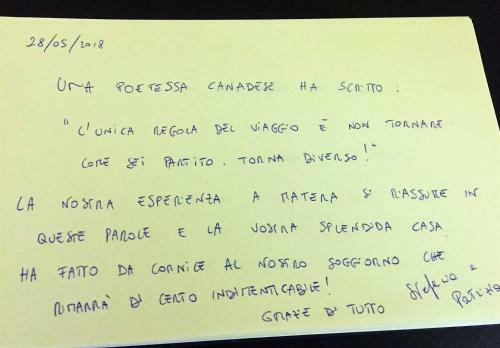 28/05/2018
UNA POETESSA CANADESE HA SCRITTO:
"L'UNICA REGOLA DEL VIAGGIO È NON TORNARE
COME SEI PARTITO. TORNA DIVERSO!"
LA NOSTRA ESPERIENZA A MATERA SI RIASSUME IN
QUESTE PAROLE E LA VOSTRA SPLENDIDA CASA
HA FATTO DA CORNICE AL NOSTRO SOGGIORNO CHE
RIMARRÀ DI CERTO INDIMENTICABILE!
GRAZIE DI TUTTO
Stefania e
Patrizia